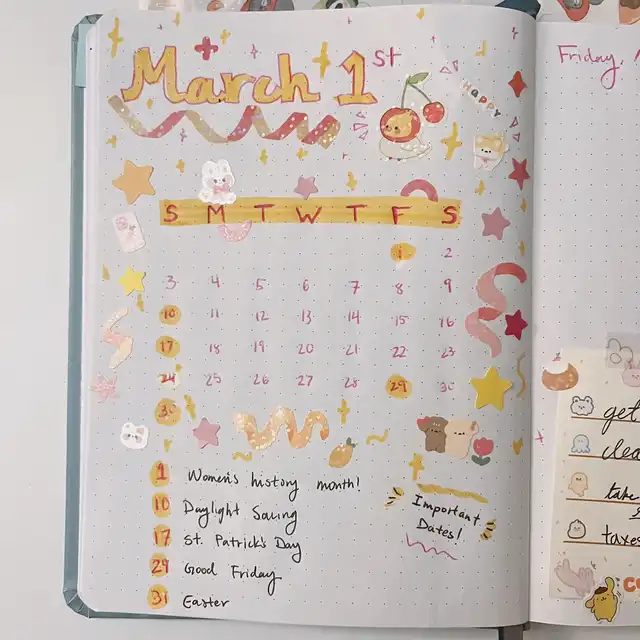 March 1st
HAPPY
S M T W T F S
1 2
3 4 5 6 7 8 9
10 11 12 13 14 15 16
17 18 19 20 21 22 23
24 25 26 27 28 29 30
31
1 Women's history month!
10 Daylight Saving
17 St. Patrick's Day
29 Good Friday
31 Easter
Important
Dates!
Friday,
get
clea
take
taxes